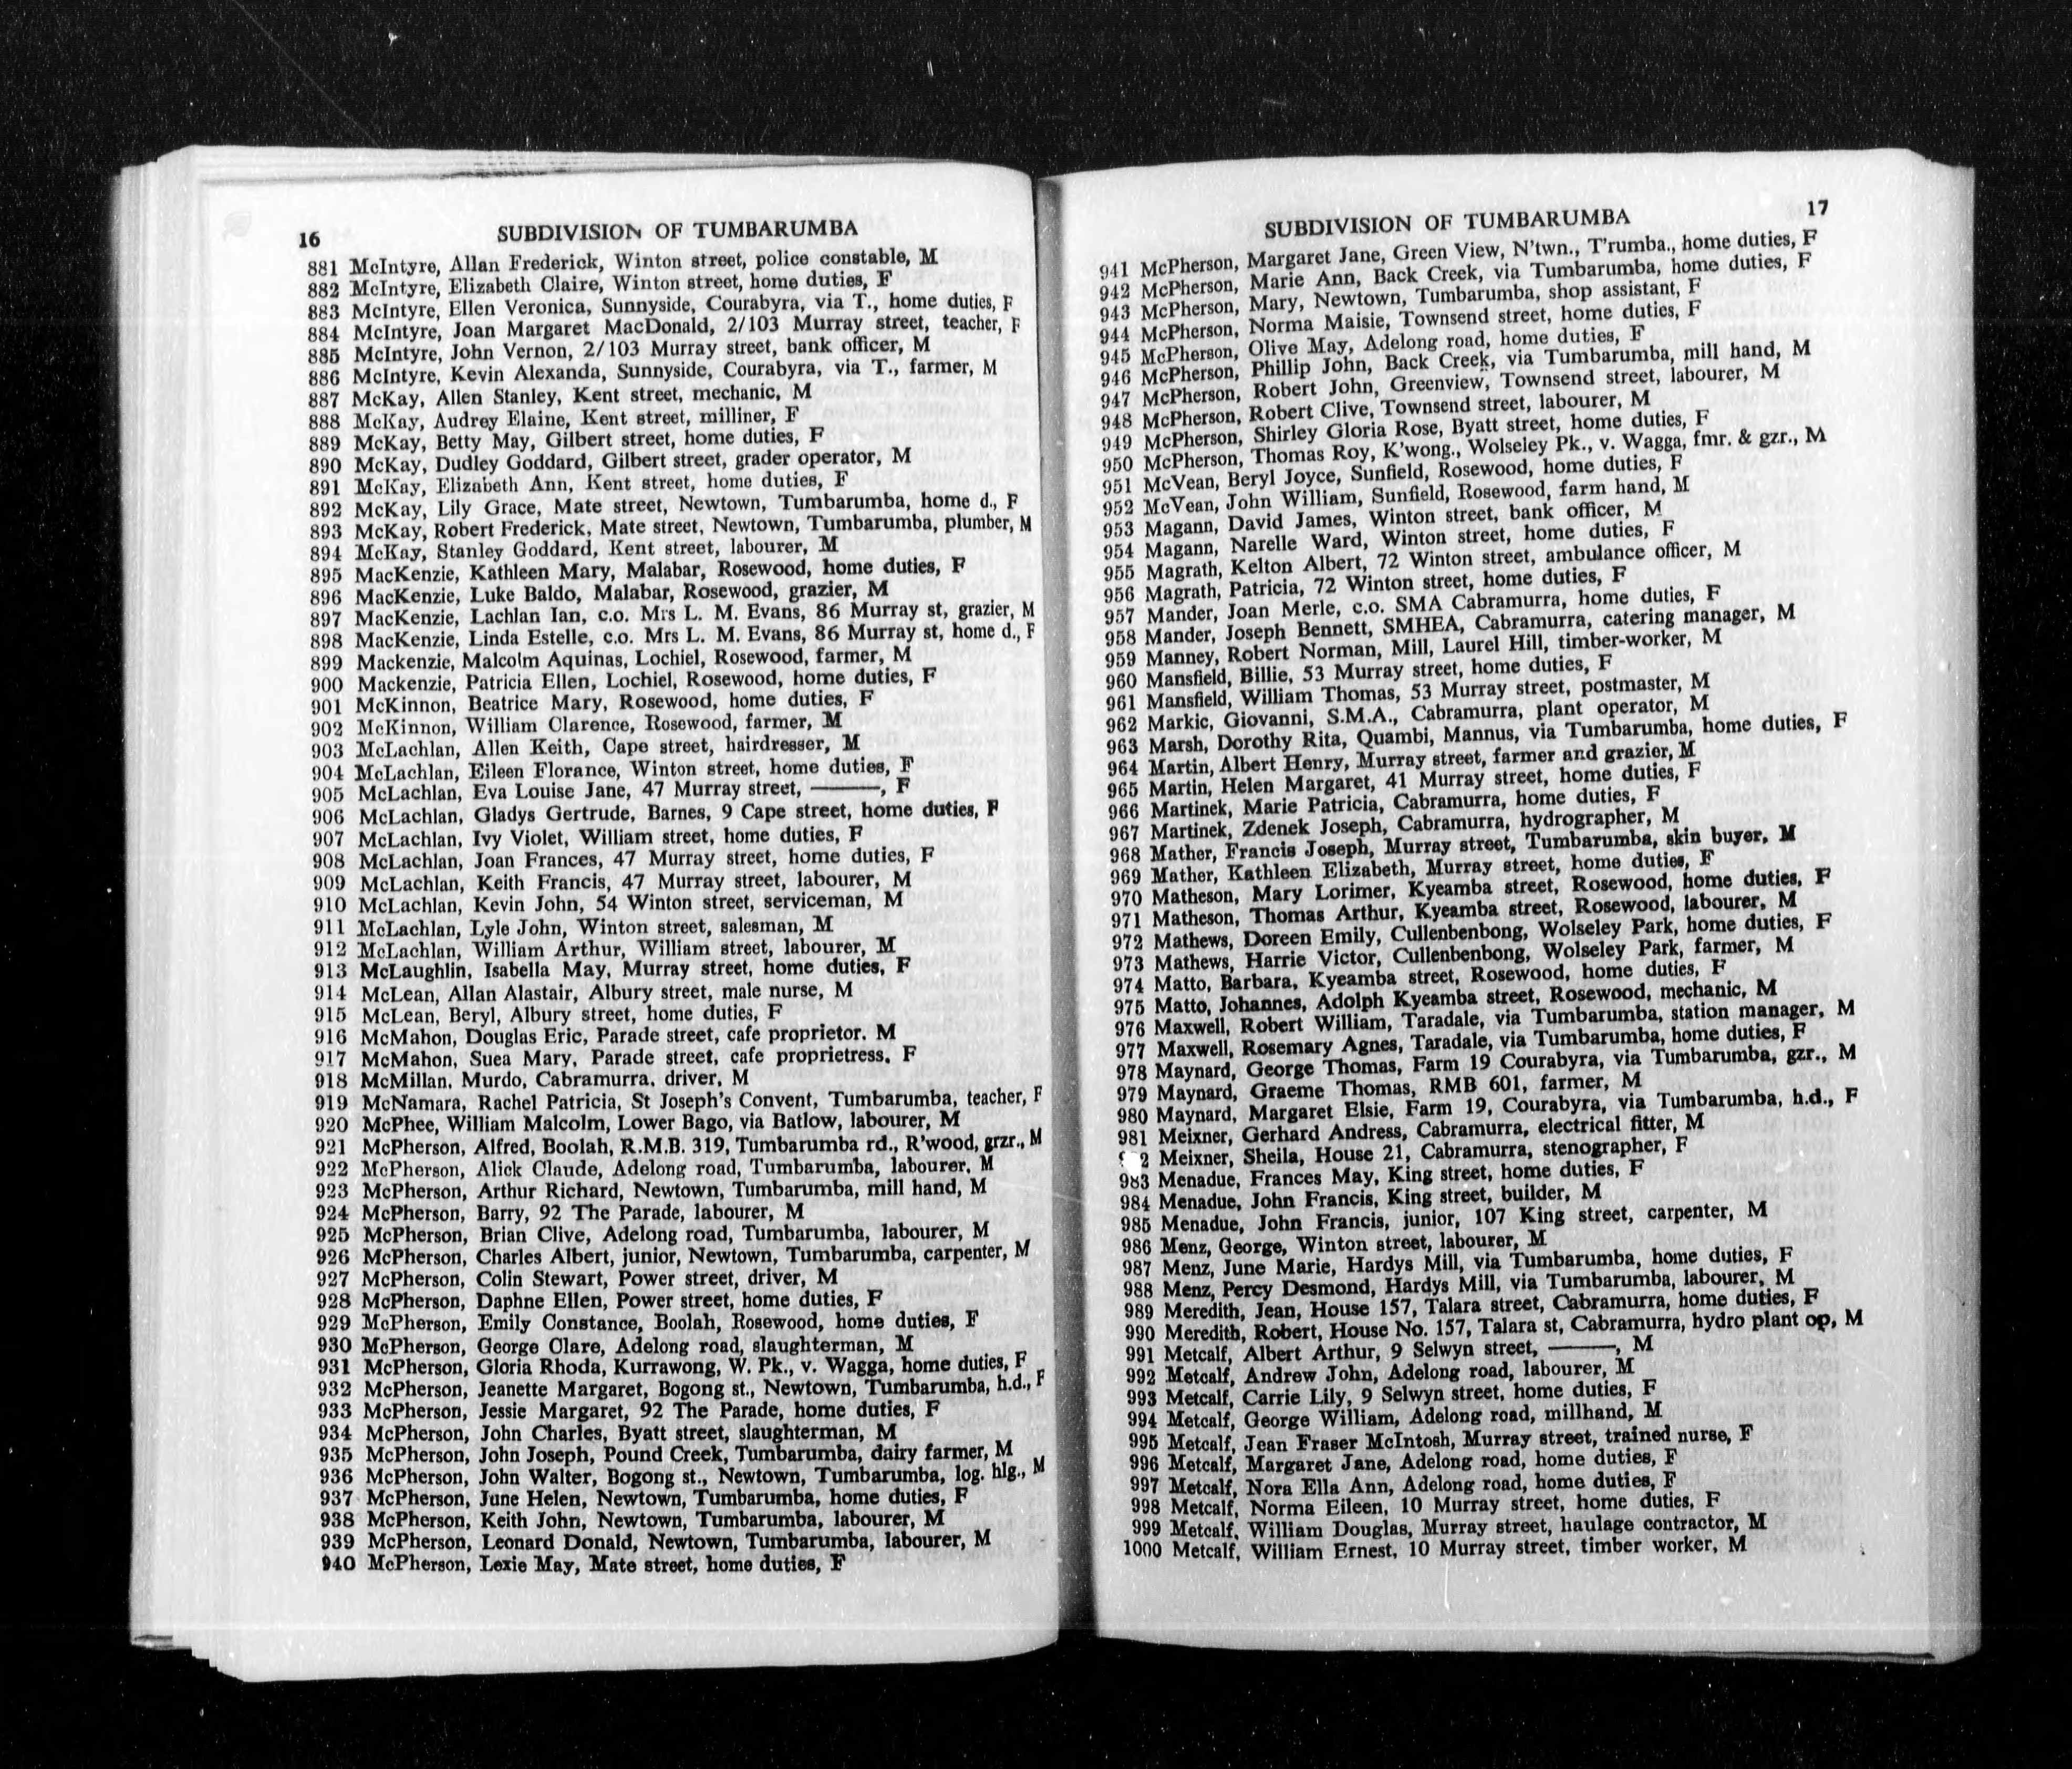 16
SUBDIVISION OF TUMBARUMBA
881 McIntyre, Allan Frederick, Winton street, police constable, M
882 McIntyre, Elizabeth Claire, Winton street, home duties, F
883 McIntyre, Ellen Veronica, Sunnyside, Courabyra, via T., home duties, F
884 McIntyre, Joan Margaret MacDonald, 2/103 Murray street, teacher, F
885 McIntyre, John Vernon, 2/103 Murray street, bank officer, M
886 McIntyre, Kevin Alexanda, Sunnyside, Courabyra, via T., farmer, M
887 McKay, Allen Stanley, Kent street, mechanic, M
888 McKay, Audrey Elaine, Kent street, milliner, F
889 McKay, Betty May, Gilbert street, home duties, F
890 McKay, Dudley Goddard, Gilbert street, grader operator, M
891 McKay, Elizabeth Ann, Kent street, home duties, F
892 McKay, Lily Grace, Mate street, Newtown, Tumbarumba, home d., F
893 McKay, Robert Frederick, Mate street, Newtown, Tumbarumba, plumber, M
894 McKay, Stanley Goddard, Kent street, labourer, M
895 MacKenzie, Kathleen Mary, Malabar, Rosewood, home duties, F
896 MacKenzie, Luke Baldo, Malabar, Rosewood, grazier, M
897 MacKenzie, Lachlan Ian, c.o. Mrs L. M. Evans, 86 Murray st, grazier, M
898 MacKenzie, Linda Estelle, c.o. Mrs L. M. Evans, 86 Murray st, home d., F
899 Mackenzie, Malcolm Aquinas, Lochiel, Rosewood, farmer, M
900 Mackenzie, Patricia Ellen, Lochiel, Rosewood, home duties, F
901 McKinnon, Beatrice Mary, Rosewood, home duties, F
902 McKinnon, William Clarence, Rosewood, farmer, M
903 McLachlan, Allen Keith, Cape street, hairdresser, M
904 McLachlan, Eileen Florance, Winton street, home duties, F
905 McLachlan, Eva Louise Jane, 47 Murray street, ———, F
906 McLachlan, Gladys Gertrude, Barnes, 9 Cape street, home duties, F
907 McLachlan, Ivy Violet, William street, home duties, F
908 McLachlan, Joan Frances, 47 Murray street, home duties, F
909 McLachlan, Keith Francis, 47 Murray street, labourer, M
910 McLachlan, Kevin John, 54 Winton street, serviceman, M
911 McLachlan, Lyle John, Winton street, salesman, M
912 McLachlan, William Arthur, William street, labourer, M
913 McLaughlin, Isabella May, Murray street, home duties, F
914 McLean, Allan Alastair, Albury street, male nurse, M
915 McLean, Beryl, Albury street, home duties, F
916 McMahon, Douglas Eric, Parade street, cafe proprietor. M
917 McMahon, Suea Mary, Parade street, cafe proprietress, F
918 McMillan, Murdo, Cabramurra, driver, M
919 McNamara, Rachel Patricia, St Joseph's Convent, Tumbarumba, teacher, F
920 McPhee, William Malcolm, Lower Bago, via Batlow, labourer, M
921 McPherson, Alfred, Boolah, R.M.B. 319, Tumbarumba rd., R'wood, grzr., M
922 McPherson, Alick Claude, Adelong road, Tumbarumba, labourer, M
923 McPherson, Arthur Richard, Newtown, Tumbarumba, mill hand, M
924 McPherson, Barry, 92 The Parade, labourer, M
925 McPherson, Brian Clive, Adelong road, Tumbarumba, labourer, M
926 McPherson, Charles Albert, junior, Newtown, Tumbarumba, carpenter, M
927 McPherson, Colin Stewart, Power street, driver, M
928 McPherson, Daphne Ellen, Power street, home duties, F
929 McPherson, Emily Constance, Boolah, Rosewood, home duties, F
930 McPherson, George Clare, Adelong road, slaughterman, M
931 McPherson, Gloria Rhoda, Kurrawong, W. Pk., v. Wagga, home duties, F
932 McPherson, Jeanette Margaret, Bogong st., Newtown, Tumbarumba, h.d., F
933 McPherson, Jessie Margaret, 92 The Parade, home duties, F
934 McPherson, John Charles, Byatt street, slaughterman, M
935 McPherson, John Joseph, Pound Creek, Tumbarumba, dairy farmer, M
936 McPherson, John Walter, Bogong st., Newtown, Tumbarumba, log. hlg., M
937 McPherson, June Helen, Newtown, Tumbarumba, home duties, F
938 McPherson, Keith John, Newtown, Tumbarumba, labourer, M
939 McPherson, Leonard Donald, Newtown, Tumbarumba, labourer, M
940 McPherson, Lexie May, Mate street, home duties, F
SUBDIVISION OF TUMBARUMBA
17
941 McPherson, Margaret Jane, Green View, N'twn., T'rumba., home duties, F
942 McPherson, Marie Ann, Back Creek, via Tumbarumba, home duties, F
943 McPherson, Mary, Newtown, Tumbarumba, shop assistant, F
944 McPherson, Norma Maisie, Townsend street, home duties, F
945 McPherson, Olive May, Adelong road, home duties, F
946 McPherson, Phillip John, Back Creek, via Tumbarumba, mill hand, M
947 McPherson, Robert John, Greenview, Townsend street, labourer, M
948 McPherson, Robert Clive, Townsend street, labourer, M
949 McPherson, Shirley Gloria Rose, Byatt street, home duties, F
950 McPherson, Thomas Roy, K'wong., Wolseley Pk., v. Wagga, fmr. & gzr., M
951 McVean, Beryl Joyce, Sunfield, Rosewood, home duties, F
952 McVean, John William, Sunfield, Rosewood, farm hand, M
953 Magann, David James, Winton street, bank officer, M
954 Magann, Narelle Ward, Winton street, home duties, F
955 Magrath, Kelton Albert, 72 Winton street, ambulance officer, M
956 Magrath, Patricia, 72 Winton street, home duties, F
957 Mander, Joan Merle, c.o. SMA Cabramurra, home duties, F
958 Mander, Joseph Bennett, SMHEA, Cabramurra, catering manager, M
959 Manney, Robert Norman, Mill, Laurel Hill, timber-worker, M
960 Mansfield, Billie, 53 Murray street, home duties, F
961 Mansfield, William Thomas, 53 Murray street, postmaster, M
962 Markic, Giovanni, S.M.A., Cabramurra, plant operator, M
963 Marsh, Dorothy Rita, Quambi, Mannus, via Tumbarumba, home duties, F
964 Martin, Albert Henry, Murray street, farmer and grazier, M
965 Martin, Helen Margaret, 41 Murray street, home duties, F
966 Martinek, Marie Patricia, Cabramurra, home duties, F
967 Martinek, Zdenek Joseph, Cabramurra, hydrographer, M
968 Mather, Francis Joseph, Murray street, Tumbarumba, skin buyer, M
969 Mather, Kathleen Elizabeth, Murray street, home duties, F
970 Matheson, Mary Lorimer, Kyeamba street, Rosewood, home duties, F
971 Matheson, Thomas Arthur, Kyeamba street, Rosewood, labourer, M
972 Mathews, Doreen Emily, Cullenbenbong, Wolseley Park, home duties, F
973 Mathews, Harrie Victor, Cullenbenbong, Wolseley Park, farmer, M
974 Matto, Barbara, Kyeamba street, Rosewood, home duties, F
975 Matto, Johannes, Adolph Kyeamba street, Rosewood, mechanic, M
976 Maxwell, Robert William, Taradale, via Tumbarumba, station manager, M
977 Maxwell, Rosemary Agnes, Taradale, via Tumbarumba, home duties, F
978 Maynard, George Thomas, Farm 19 Courabyra, via Tumbarumba, gzr., M
979 Maynard, Graeme Thomas, RMB 601, farmer, M
980 Maynard, Margaret Elsie, Farm 19, Courabyra, via Tumbarumba, h.d., F
981 Meixner, Gerhard Andress, Cabramurra, electrical fitter, M
2 Meixner, Sheila, House 21, Cabramurra, stenographer, F
983 Menadue, Frances May, King street, home duties, F
984 Menadue, John Francis, King street, builder, M
985 Menadue, John Francis, junior, 107 King street, carpenter, M
986 Menz, George, Winton street, labourer, M
987 Menz, June Marie, Hardys Mill, via Tumbarumba, home duties, F
988 Menz, Percy Desmond, Hardys Mill, via Tumbarumba, labourer, M
989 Meredith, Jean, House 157, Talara street, Cabramurra, home duties, F
990 Meredith, Robert, House No. 157, Talara st, Cabramurra, hydro plant op, M
991 Metcalf, Albert Arthur, 9 Selwyn street, ———, M
992 Metcalf, Andrew John, Adelong road, labourer, M
993 Metcalf, Carrie Lily, 9 Selwyn street, home duties, F
994 Metcalf, George William, Adelong road, millhand, M
995 Metcalf, Jean Fraser McIntosh, Murray street, trained nurse, F
996 Metcalf, Margaret Jane, Adelong road, home duties, F
997 Metcalf, Nora Ella Ann, Adelong road, home duties, F
998 Metcalf, Norma Eileen, 10 Murray street, home duties, F
999 Metcalf, William Douglas, Murray street, haulage contractor, M
1000 Metcalf, William Ernest, 10 Murray street, timber worker, M